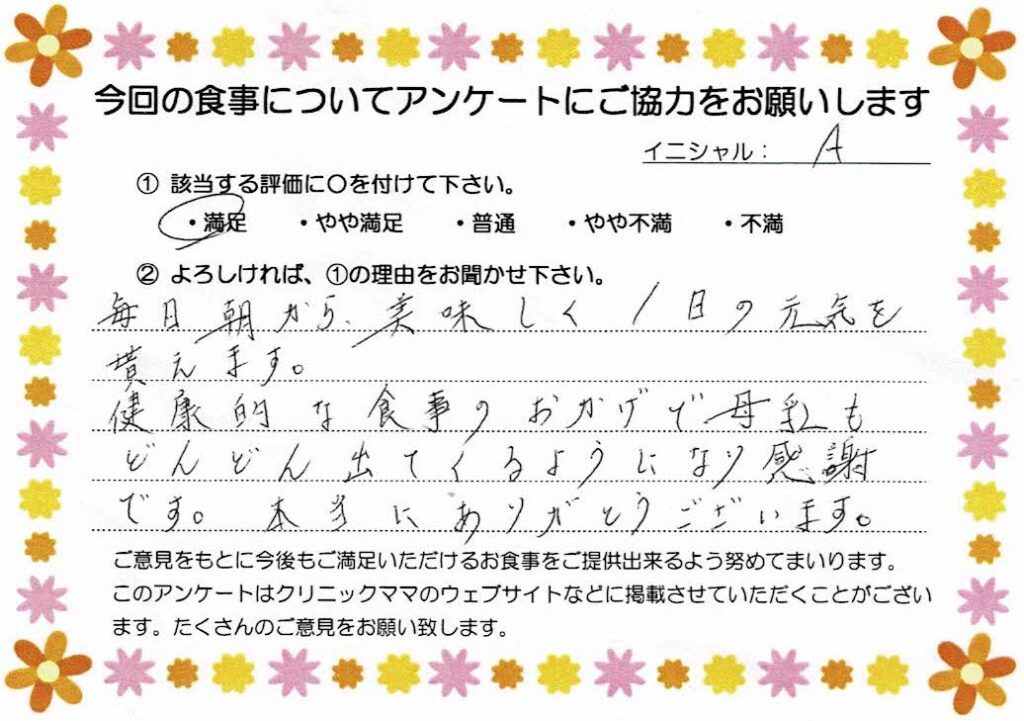 今回の食事についてアンケートにご協力をお願いします
イニシャル： A
① 該当する評価に〇を付けて下さい。
・満足 ・やや満足 ・普通 ・やや不満 ・不満
② よろしければ、①の理由をお聞かせ下さい。
毎日朝から、美味しく1日の元気を
貰えます。
健康的な食事のおかげで母乳も
どんどん出てくるようになり感謝
です。本当にありがとうございます。
ご意見をもとに今後もご満足いただけるお食事をご提供出来るよう努めてまいります。
このアンケートはクリニックママのウェブサイトなどに掲載させていただくことがござい
ます。たくさんのご意見をお願い致します。